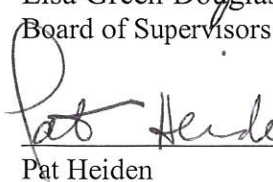 Lisa Green Douglas
Board of Supervisors
Pat Heide
Pat Heiden